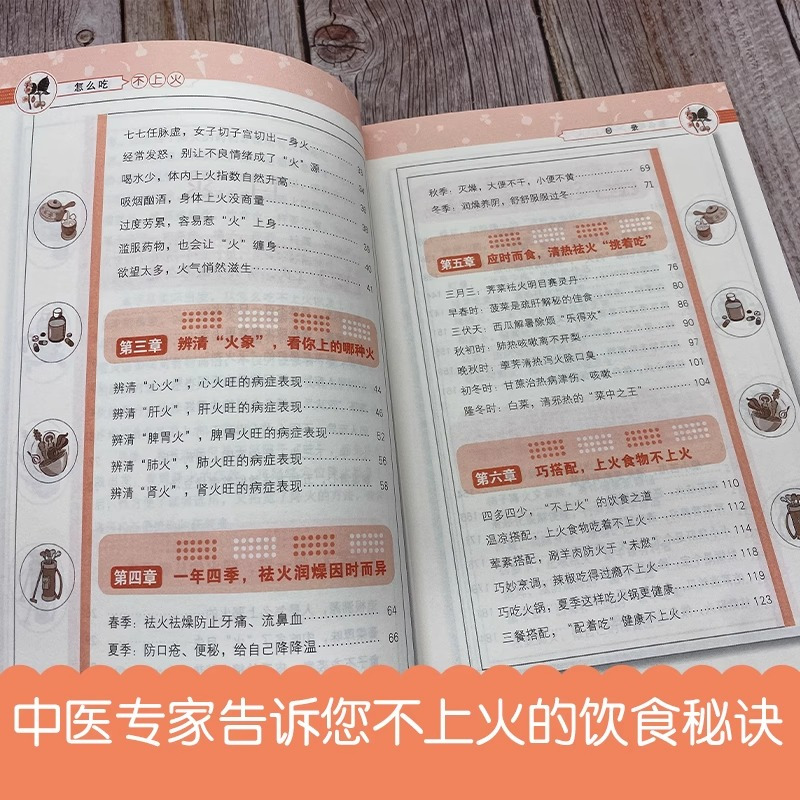 怎么吃 不上火
七七任脉虚，女子切子宫切出一身火
经常发怒，别让不良情绪成了“火”源
喝水少，体内上火指数自然升高
吸烟酗酒，身体上火没商量
过度劳累，容易惹“火”上身 38
滥服药物，也会让“火”缠身
欲望太多，火气悄然滋生 41
第三章 辨清“火象”，看你上的哪种火
辨清“心火”，心火旺的病症表现 44
辨清“肝火”，肝火旺的病症表现
辨清“脾胃火”，脾胃火旺的病症表现 52
辨清“肺火”，肺火旺的病症表现 56
辨清“肾火”，肾火旺的病症表现 58
第四章 一年四季，祛火润燥因时而异
春季：祛火祛燥防止牙痛、流鼻血 64
夏季：防口疮、便秘，给自己降降温 66
目录
秋季：灭燥，大便不干，小便不黄 69
冬季：润燥养阴，舒舒服服过冬 71
第五章 应时而食，清热祛火“挑着吃”
三月三：荠菜祛火明目赛灵丹 76
早春时：菠菜是疏肝解秘的佳食 80
三伏天：西瓜解暑除烦“乐得欢” 86
秋初时：肺热咳嗽离不开梨 90
晚秋时：荸荠清热泻火除口臭 97
初冬时：甘蔗治热病津伤、咳嗽 101
隆冬时：白菜，清邪热的“菜中之王” 104
第六章 巧搭配，上火食物不上火
四多四少，“不上火”的饮食之道 110
温凉搭配，上火食物吃着不上火 112
荤素搭配，涮羊肉防火于“未燃” 114
巧妙烹调，辣椒吃得过瘾不上火 118
巧吃火锅，夏季这样吃火锅更健康 119
三餐搭配，“配着吃”健康不上火 123
中医专家告诉您不上火的饮食秘诀